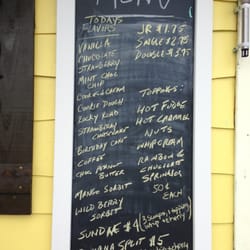 MENU
TODAYS
FLAVORS
VANILLA
CHOCOLATE
STRAWBERRY
MINT CHOC
CHIP
COOKIES & CREAM
COOKIE DOUGH
ROCKY ROAD
STRAWBERRY
CHEESECAKE
BIRTHDAY CAKE
COFFEE
CHOC PEANUT
BUTTER
MANGO SORBIT
WILD BERRY
SORBIT
JR $1.75
SINGLE $2.75
DOUBLE $3.75
TOPPINGS:
HOT FUDGE
HOT CARAMEL
NUTS
WHIPCREAM
RAINBOW &
CHOCOLATE
SPRINKLES
50¢
EACH
SUNDAE $4
BANANA SPLIT $5